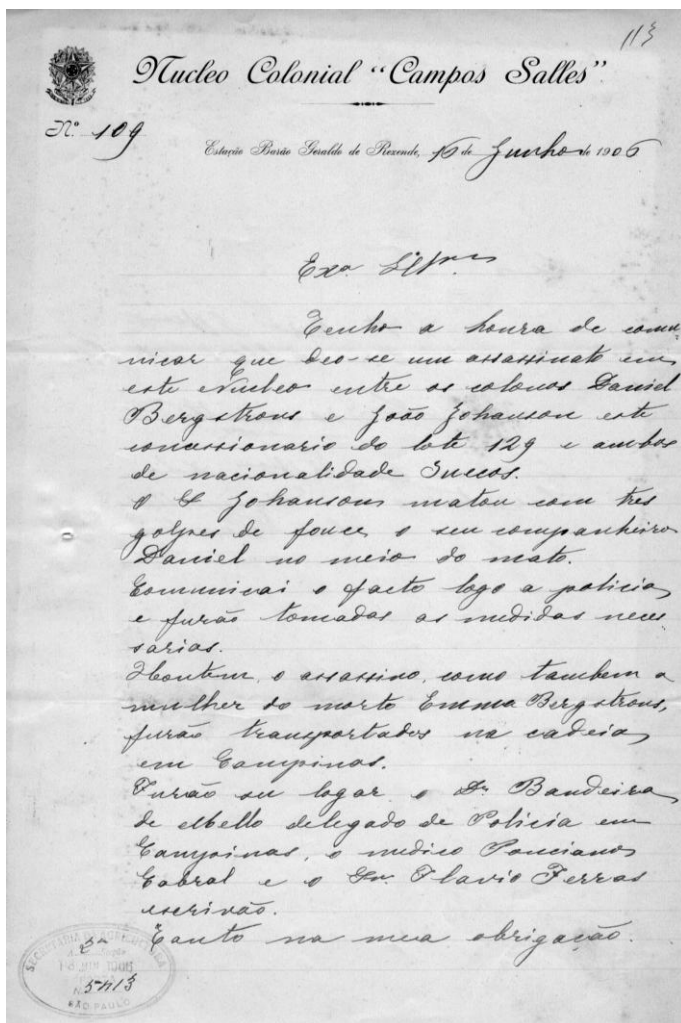 113
Nucleo Colonial “Campos Salles”
Nº 109
Estação Barão Geraldo de Rezende, 16 de Junho de 1906
Exº
Tenho a honra de comu-
nicar que deo-se um assassinato em
este Nucleo entre os colonos Daniel
Bergstrons e João Johanson este
concessionario do lote 129 e ambos
de nacionalidade Suecos.
O Johansons matou com tres
golpes de fouce o seu companheiro
Daniel no meio do mato.
Comunicai o facto logo a policia
e furão tomadas as medidas neces
sarias.
Hontem, o assassino, como tambem a
mulher do morto Emma Bergstrons,
furão transportados na cadeia
em Campinas.
Furão su logar o Dr Bandeira
de Mello delegado de Policia em
Campinas, o medico Ponciano
Cabral e o Snr. Flavio Ferras
escrivão.
Tanto na mea obrigação.
SECRETARIA DA AGRICULTURA
2ª
5413
SÃO PAULO